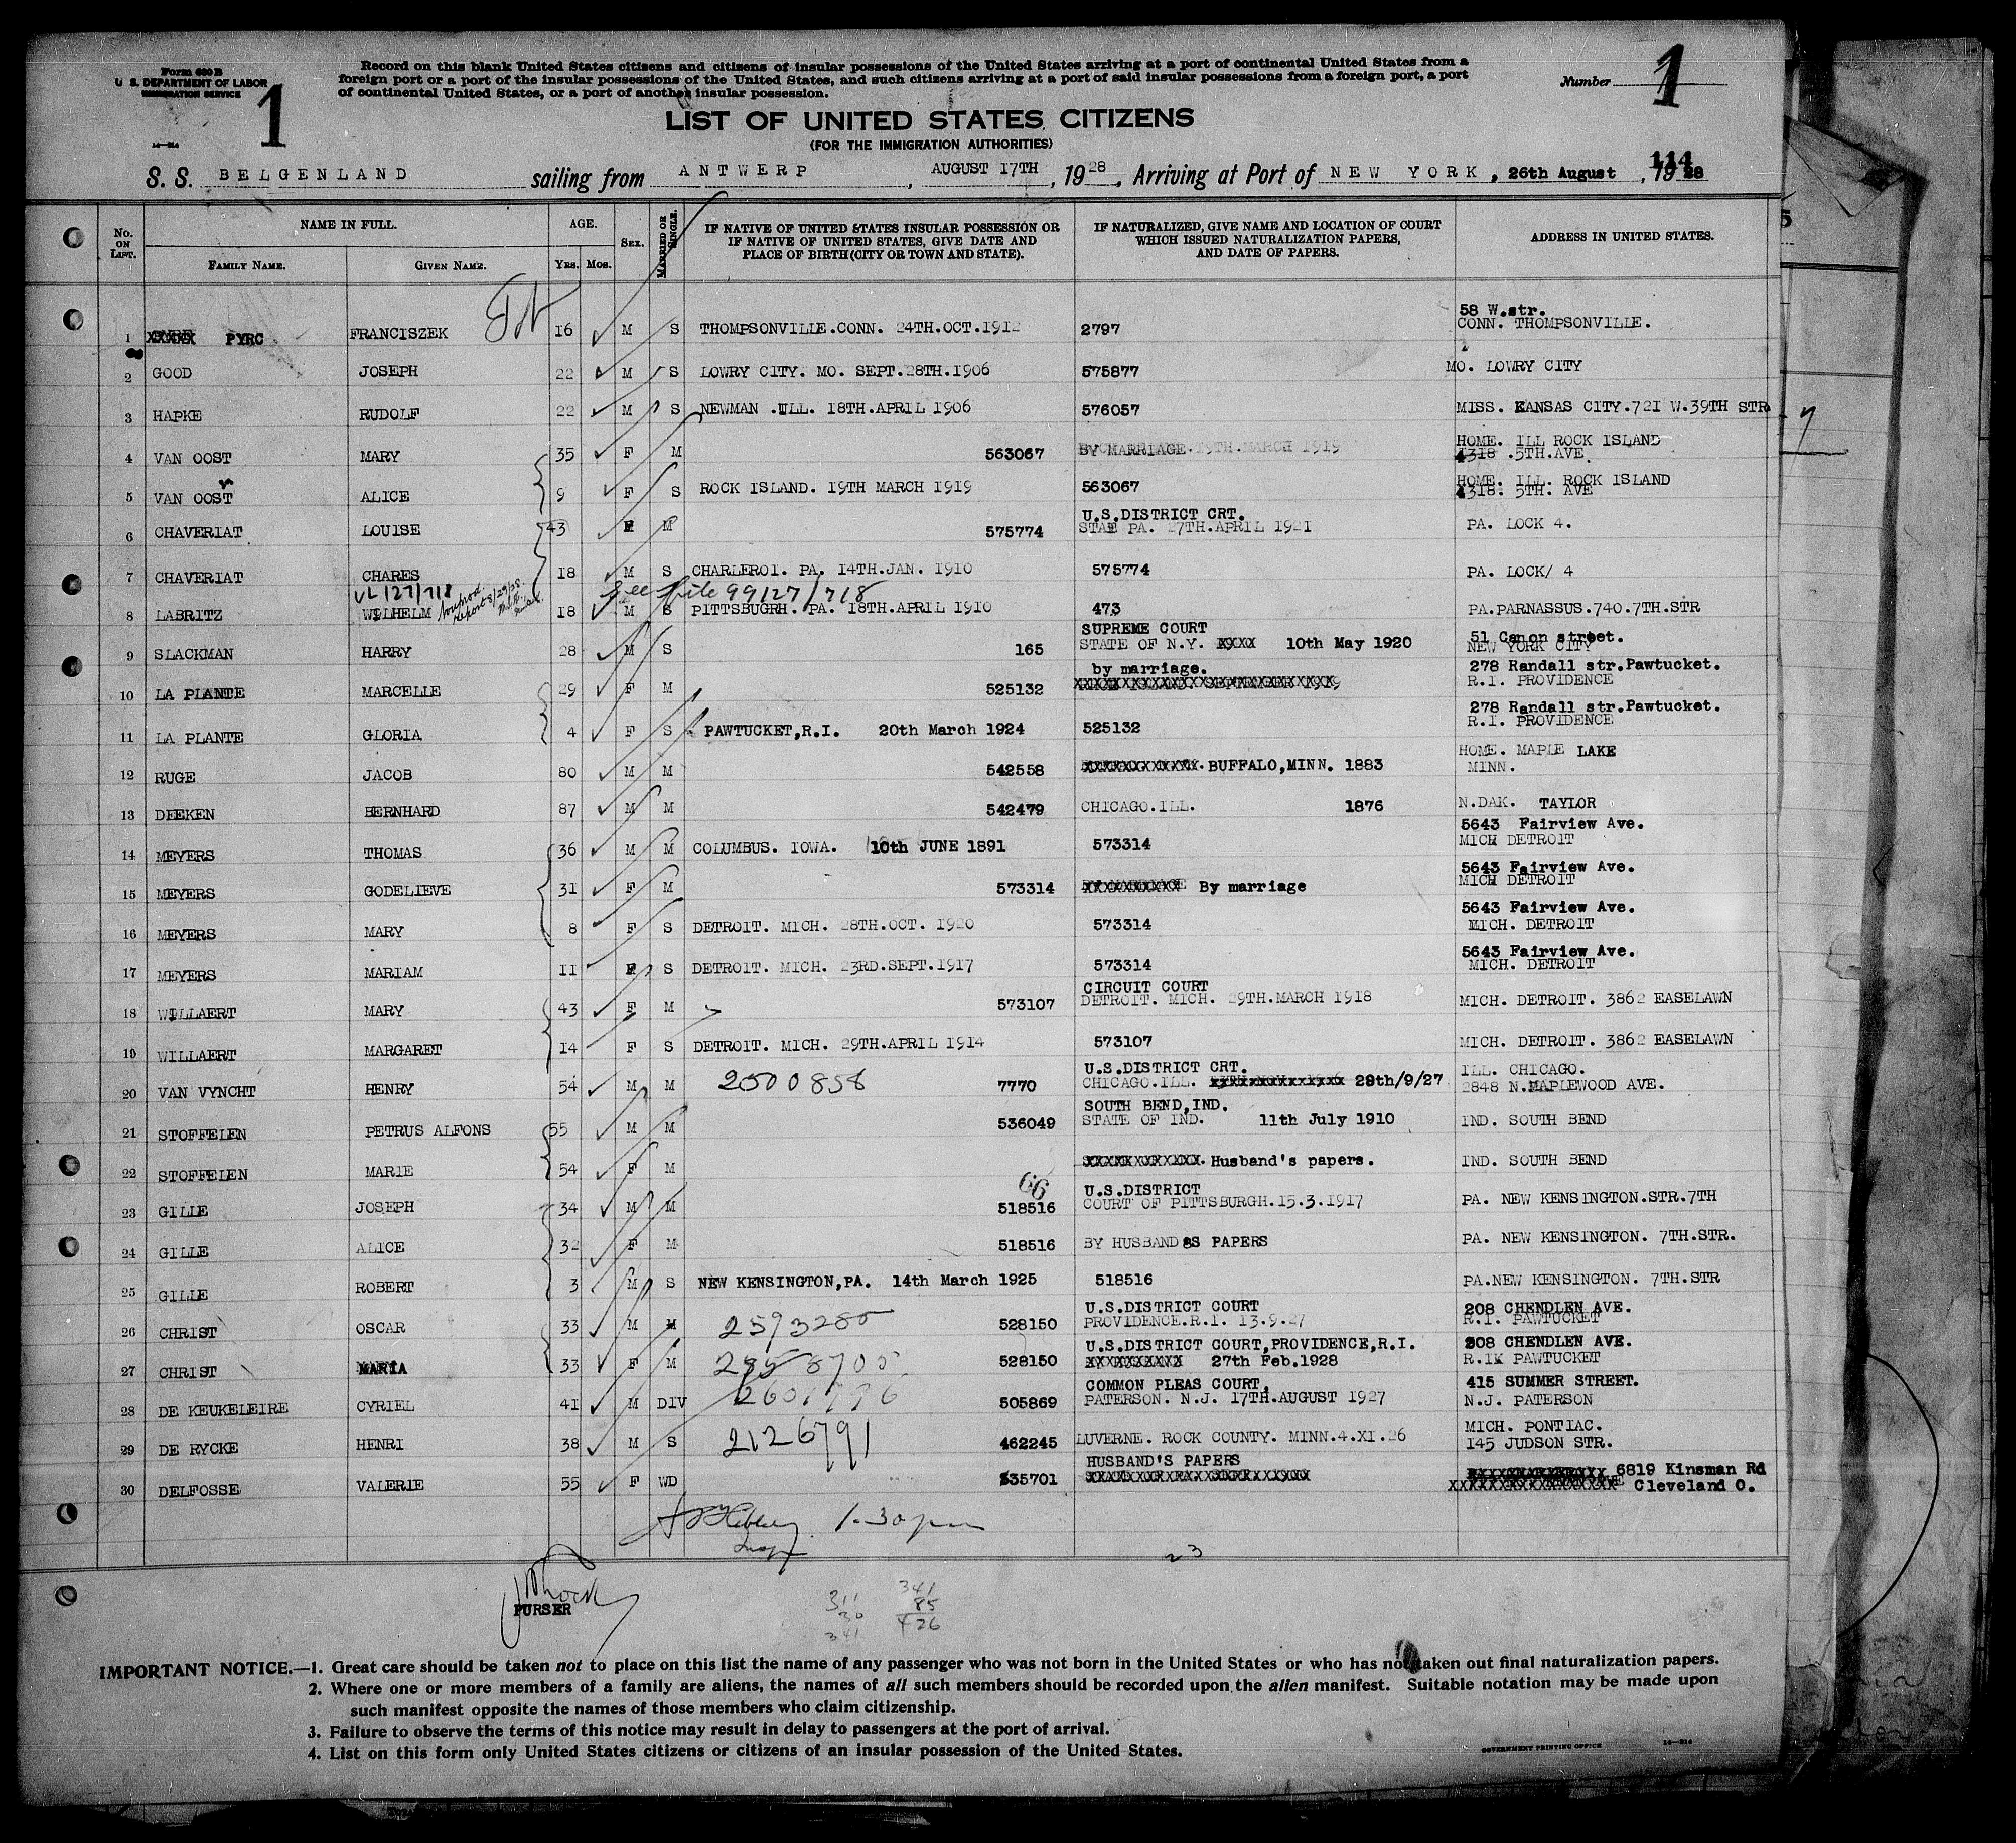 Form 630 B
U. S. DEPARTMENT OF LABOR
IMMIGRATION SERVICE
1
14—214
Record on this blank United States citizens and citizens of insular possessions of the United States arriving at a port of continental United States from a
foreign port or a port of the insular possessions of the United States, and such citizens arriving at a port of said insular possessions from a foreign port, a port
of continental United States, or a port of another insular possession.
Number 1
LIST OF UNITED STATES CITIZENS
(FOR THE IMMIGRATION AUTHORITIES)
114
S. S. BELGENLAND sailing from ANTWERP, AUGUST 17TH, 1928, Arriving at Port of NEW YORK, 26th August, 1928
No. ON LIST. NAME IN FULL. FAMILY NAME. GIVEN NAME. AGE. YRS. MOS. SEX. MARRIED OR SINGLE. IF NATIVE OF UNITED STATES INSULAR POSSESSION OR IF NATIVE OF UNITED STATES, GIVE DATE AND PLACE OF BIRTH (CITY OR TOWN AND STATE). IF NATURALIZED, GIVE NAME AND LOCATION OF COURT WHICH ISSUED NATURALIZATION PAPERS, AND DATE OF PAPERS. ADDRESS IN UNITED STATES.
1 XXXXX PYRC FRANCISZEK 16 M S THOMPSONVILLE.CONN. 24TH.OCT.1912 2797 58 W.str. CONN. THOMPSONVILLE.
2 GOOD JOSEPH 22 M S LOWRY CITY. MO. SEPT.28TH.1906 575877 MO. LOWRY CITY
3 HAPKE RUDOLF 22 M S NEWMAN .ILL. 18TH.APRIL 1906 576057 MISS. KANSAS CITY.721 W.39TH STR
4 VAN OOST MARY 35 F M 563067 BY MARRIAGE.19TH.MARCH 1919 HOME. ILL ROCK ISLAND 4318 .5TH.AVE
5 VAN OOST ALICE 9 F S ROCK ISLAND. 19TH MARCH 1919 563067 HOME. ILL. ROCK ISLAND 4318. 5TH. AVE
6 CHAVERIAT LOUISE 43 F M 575774 U.S.DISTRICT CRT. STAE PA. 27TH.APRIL 1921 PA. LOCK 4.
7 CHAVERIAT CHARES 18 M S CHARLEROI. PA. 14TH.JAN. 1910 575774 PA. LOCK/ 4
VL 127/718 See file 99127/718
8 LABRITZ WILHELM 18 M S PITTSBUGRH. PA. 18TH.APRIL 1910 473 PA.PARNASSUS.740.7TH.STR
9 SLACKMAN HARRY 28 M S 165 SUPREME COURT STATE OF N.Y. XXXX 10th May 1920 51 Canon street. NEW YORK CITY
10 LA PLANTE MARCELLE 29 F M 525132 by marriage. 278 Randall str.Pawtucket. R.I. PROVIDENCE
11 LA PLANTE GLORIA 4 F S PAWTUCKET,R.I. 20th March 1924 525132 278 Randall str.Pawtucket. R.I. PROVIDENCE
12 RUGE JACOB 80 M M 542558 BUFFALO,MINN. 1883 HOME. MAPLE LAKE MINN.
13 DEEKEN BERNHARD 87 M M 542479 CHICAGO.ILL. 1876 N.DAK. TAYLOR
14 MEYERS THOMAS 36 M M COLUMBUS. IOWA. 10th JUNE 1891 573314 5643 Fairview Ave. MICH DETROIT
15 MEYERS GODELIEVE 31 F M 573314 By marriage 5643 Fairview Ave. MICH DETROIT
16 MEYERS MARY 8 F S DETROIT. MICH. 28TH.OCT. 1920 573314 5643 Fairview Ave. MICH. DETROIT
17 MEYERS MARIAM 11 F S DETROIT. MICH. 23RD.SEPT.1917 573314 5643 Fairview Ave. MICH. DETROIT
18 WILLAERT MARY 43 F M 573107 CIRCUIT COURT DETROIT. MICH. 29TH.MARCH 1918 MICH. DETROIT. 3862 EASELAWN
19 WILLAERT MARGARET 14 F S DETROIT. MICH. 29TH.APRIL 1914 573107 MICH. DETROIT. 3862 EASELAWN
20 VAN VYNCHT HENRY 54 M M 2500858 7770 U.S.DISTRICT CRT. CHICAGO.ILL. 29th/9/27 ILL. CHICAGO. 2848 N.MAPLEWOOD AVE.
21 STOFFELEN PETRUS ALFONS 55 M M 536049 SOUTH BEND,IND. STATE OF IND. 11th July 1910 IND. SOUTH BEND
22 STOFFELEN MARIE 54 F M Husband's papers. IND. SOUTH BEND
66
23 GILLE JOSEPH 34 M M 518516 U.S.DISTRICT COURT OF PITTSBURGH.15.3.1917 PA. NEW KENSINGTON.STR.7TH
24 GILLE ALICE 32 F M 518516 BY HUSBAND8S PAPERS PA. NEW KENSINGTON. 7TH.STR.
25 GILLE ROBERT 3 M S NEW KENSINGTON,PA. 14th March 1925 518516 PA.NEW KENSINGTON. 7TH.STR
26 CHRIST OSCAR 33 M M 2593280 528150 U.S.DISTRICT COURT PROVIDENCE.R.I. 13.9.27 208 CHENDLEN AVE. R.I. PAWTUCKET
27 CHRIST MARIA 33 F M 2858705 528150 U.S.DISTRICT COURT,PROVIDENCE,R.I. XXXXXXXXXX 27th Feb.1928 208 CHENDLEN AVE. R.IX PAWTUCKET
28 DE KEUKELEIRE CYRIEL 41 M DIV 2601796 505869 COMMON PLEAS COURT, PATERSON. N.J. 17TH.AUGUST 1927 415 SUMMER STREET. N.J. PATERSON
29 DE RYCKE HENRI 38 M S 2126791 462245 LUVERNE. ROCK COUNTY. MINN.4.XI.26 MICH. PONTIAC. 145 JUDSON STR.
30 DELFOSSE VALERIE 55 F WD 535701 HUSBAND'S PAPERS 6819 Kinsman Rd Cleveland O.
1-30 pm
23
PURSER
311 341
30 85
341 426
IMPORTANT NOTICE.—1. Great care should be taken not to place on this list the name of any passenger who was not born in the United States or who has not taken out final naturalization papers.
2. Where one or more members of a family are aliens, the names of all such members should be recorded upon the alien manifest. Suitable notation may be made upon
such manifest opposite the names of those members who claim citizenship.
3. Failure to observe the terms of this notice may result in delay to passengers at the port of arrival.
4. List on this form only United States citizens or citizens of an insular possession of the United States.
GOVERNMENT PRINTING OFFICE 14—214